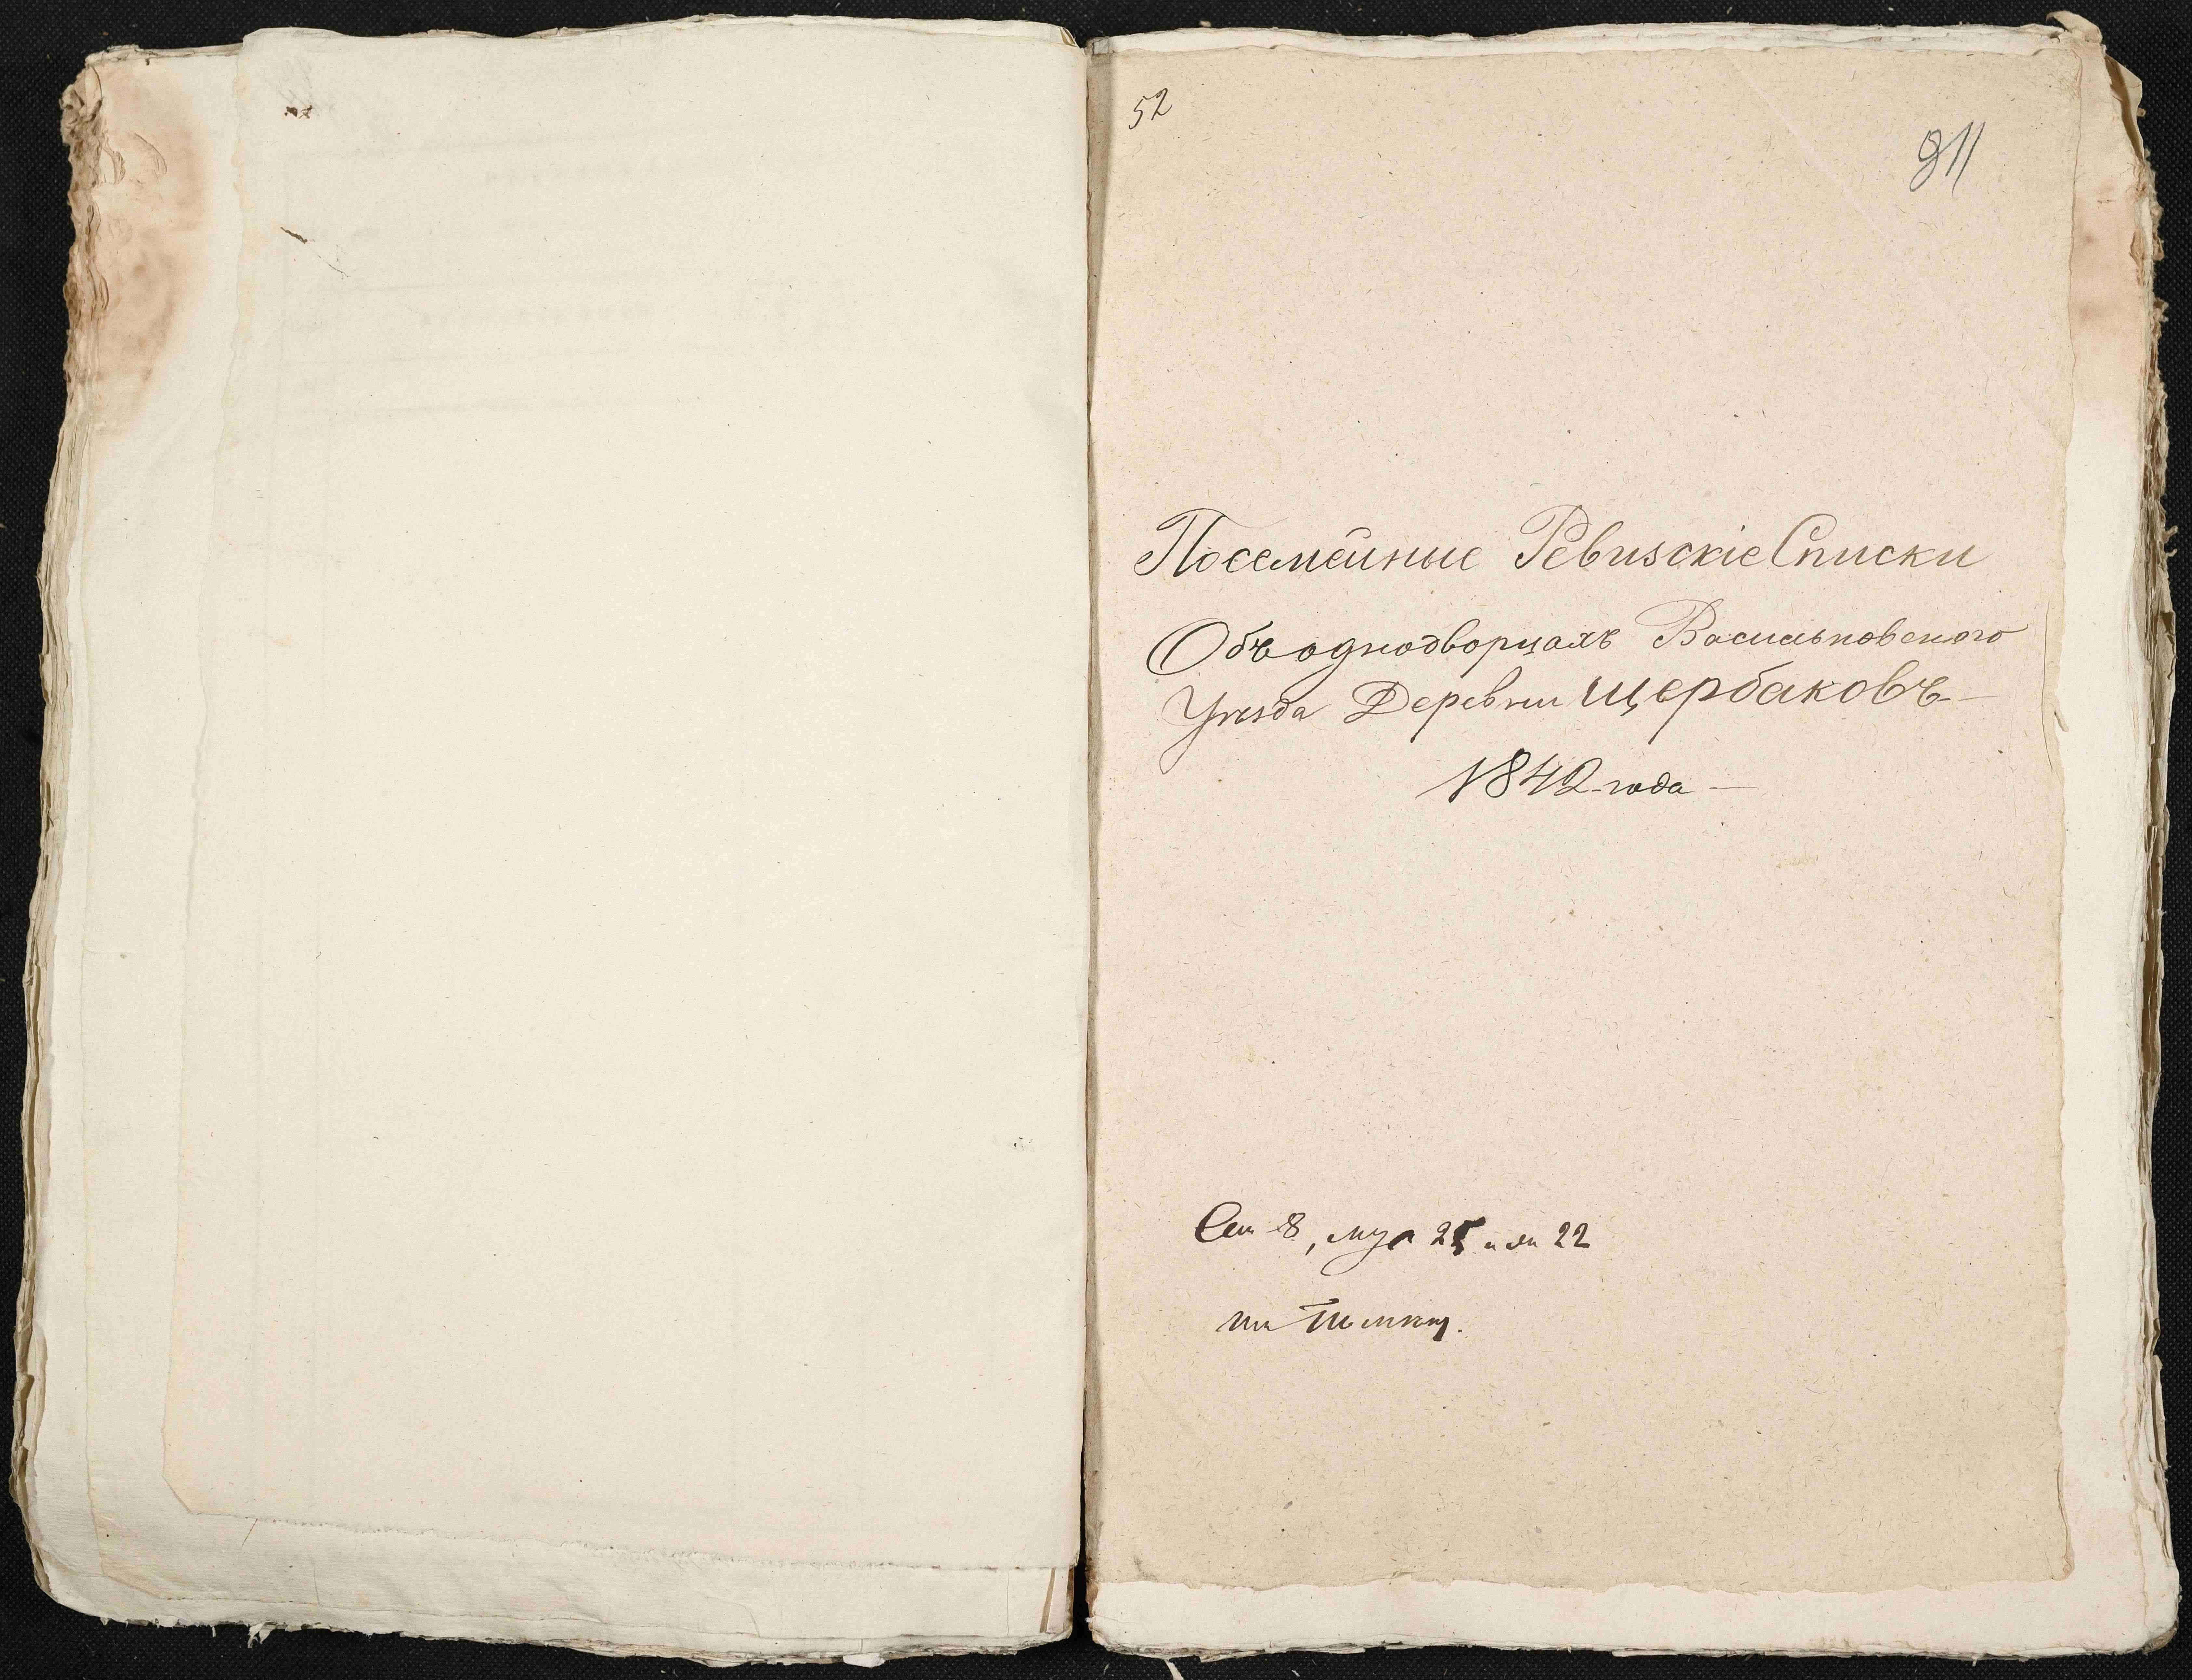 52
911
Посемейные Ревизскіе Списки
Объ однодворцахъ Васильковского
Уезда Деревни Щербаковъ
1842 года
Сем 8, муж 25 и жен 22